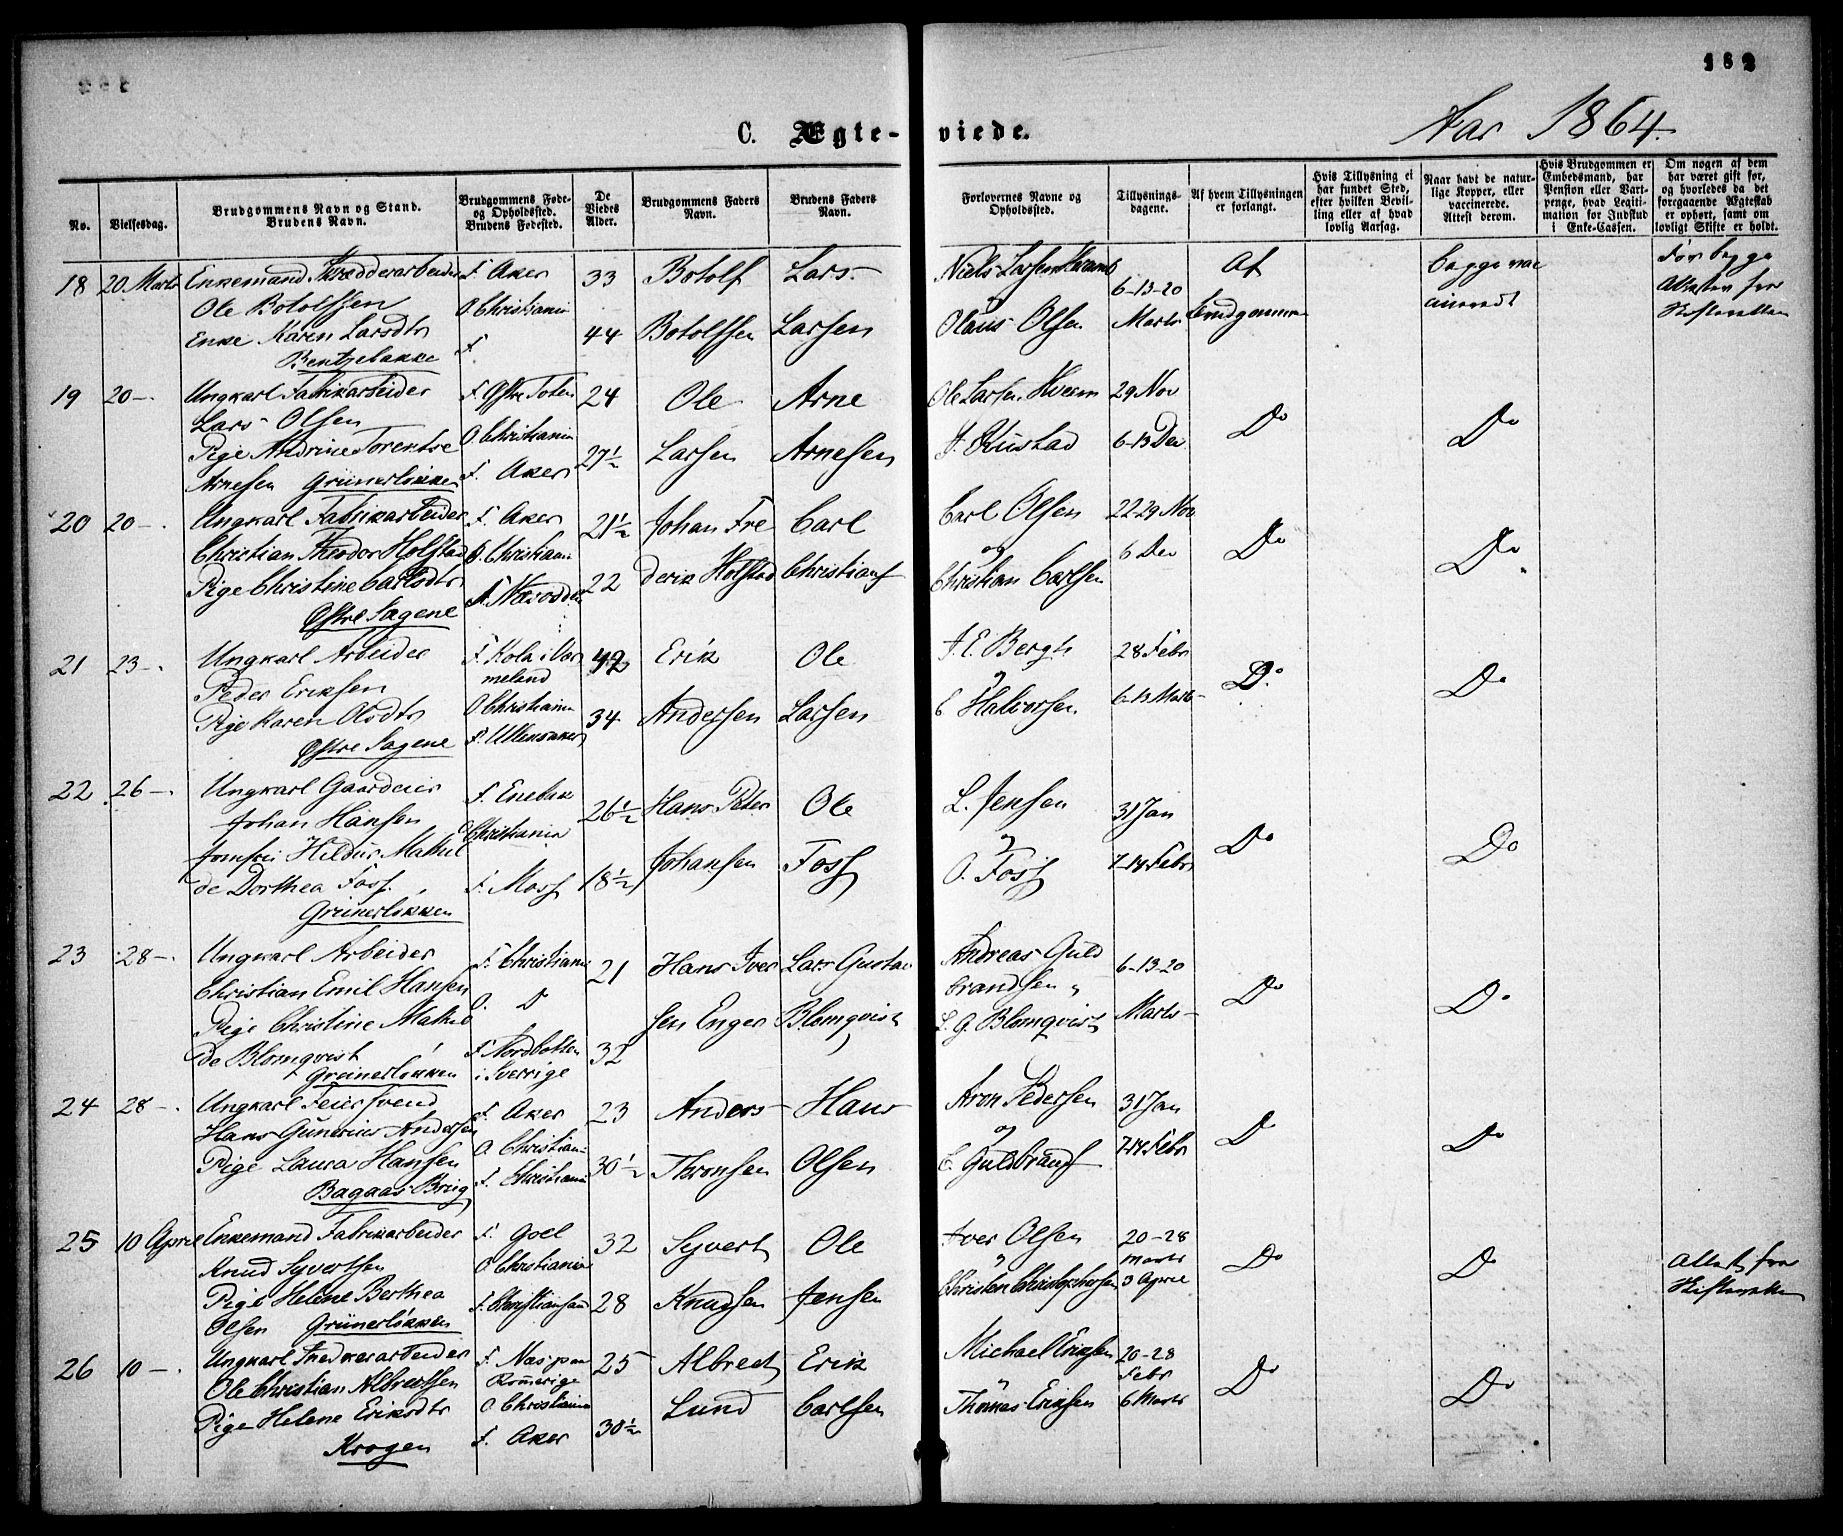 182
C. Ægte-viede.
Aar 1864.
No.
Vielsesdag.
Brudgommens Navn og Stand.
Brudens Navn.
Brudgommens Føde-
og Opholdssted.
Brudens Fødested.
De
Viedes
Alder.
Brudgommens Faders
Navn.
Brudens Faders
Navn.
Forlovernes Navne og
Opholdssted.
Tillysnings-
dagene.
Af hvem Tillysningen
er forlangt.
Hvis Tillysning ei
har fundet Sted,
efter hvilken Bevil-
ling eller af hvad
lovlig Aarsag.
Naar havt de natur-
lige Kopper, eller
vaccinerede.
Attest derom.
Hvis Brudgommen er
Embedsmand, har
Pension eller Vart-
penge, hvad Legiti-
mation for Indskud
i Enke-Cassen.
Om nogen af dem
har været gift før,
og hvorledes da det
foregaaende Ægteskab
er ophørt, samt om
lovligt Skifte er holdt.
18 20 Marts Enkemand Skrædderarbeider F. Aker 33 Botolf Lars Niels Larsen 6-13-20 Af begge vac For begge
Ole Botolfsen O Christiania Olaus Olsen Marts Brudgommen cinerede Attester fra
Enke Karen Larsdtr F 44 Botolfsen Larsen Skifteretten
Bentzebakke
19 20 — Ungkarl Fabrikarbeider F. Østre Toten 24 Ole Arne Ole Larsen Hveem 29 Nov
Lars Olsen O Christiania D° D°
Pige Andrine Torentse F. Aker 27½ Larsen Arnesen Rustad 6-13 Dec
Arnesen Grünerløkken
20 20 — Ungkarl Fabrikarbeider F. Aker 21½ Johan Fre Carl Carl Olsen 22-29 Nov
Christian Theodor Holstad O. Christiania og 6 Dec D° D°
Pige Christine Carlsdtr F. Næsodden 22 derik Holstad Christians Christian Carlsen
Østre Sagene
21 23 — Ungkarl Arbeider F. Kola i Ver 42 Erik Ole J. E. Bergh 28 Febr
Peder Eriksen meland D° D°
Pige Karen Olsdtr O Christiania 34 Andersen Larsen Halvorsen 6-13 Marts
Østre Sagene F. Ullensaker
22 26 — Ungkarl Gaardeier F. Enebak 26½ Hans Peter Ole L. Jensen 31 Jan
Johan Hansen O Christiania og D° D°
Jomfru Hildur Mathil Johansen Foss O. Foss 7-14 Febr
de Dorthea Foss F. Moss 18½
Grünerløkken
23 28 — Ungkarl Arbeider F. Christiania 21 Hans Iver Lars Gustav Andreas Guld 6-13-20
Christian Emil Hansen O. D brandsen D° D°
Pige Christine Mathil sen Enger Blomqvist L. G. Blomqvist Marts
de Blomqvist F. Nordbotten 32
Grünerløkken i Sverrige
24 28 — Ungkarl Feiersvend F. Aker 23 Anders Hans Aron Pedersen 31 Jan
Hans Gunerius Andersen O Christian og D° D°
Pige Laura Hansen F. Christiania 30½ Thronsen Olsen Guldbrands 7-14 Febr
Bagaas Brug
25 10 April Enkemand Fabrikarbeider F. Goel 32 Syvert Ole Iver Olsen 20-28
Knud Syvertsen O Christiania Marts D° D° Attest fra
Pige Helene Berthea F. Christiansand 28 Knudsen Jensen Christen Christophersen 3 April Skifteretten
Olsen Grünerløkken
26 10 — Ungkarl Snedkerarbeider F. Næs paa 25 Albrect Erik Michael Eriksen 20-28
Ole Christian Albrectsen Romerige Febr D° D°
Pige Helene Eriksdtr O Christiania Lund Carlsen Thomas Eriksen 6 Marts
Krogen F. Aker 30½